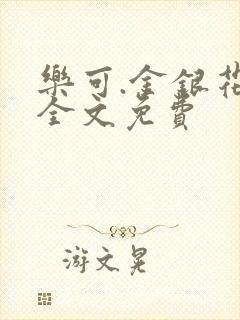 樂可.金銀花
全文免費
游文晃